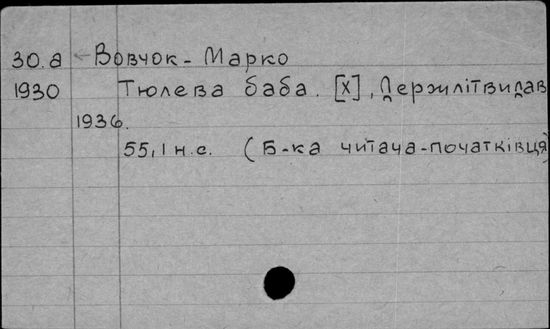 30.а Вовчок-Марко
1930 Тюлева баба. [Х], Держлітвидав
1936.
55, 1 н.с. (Б-ка читача-початківця)